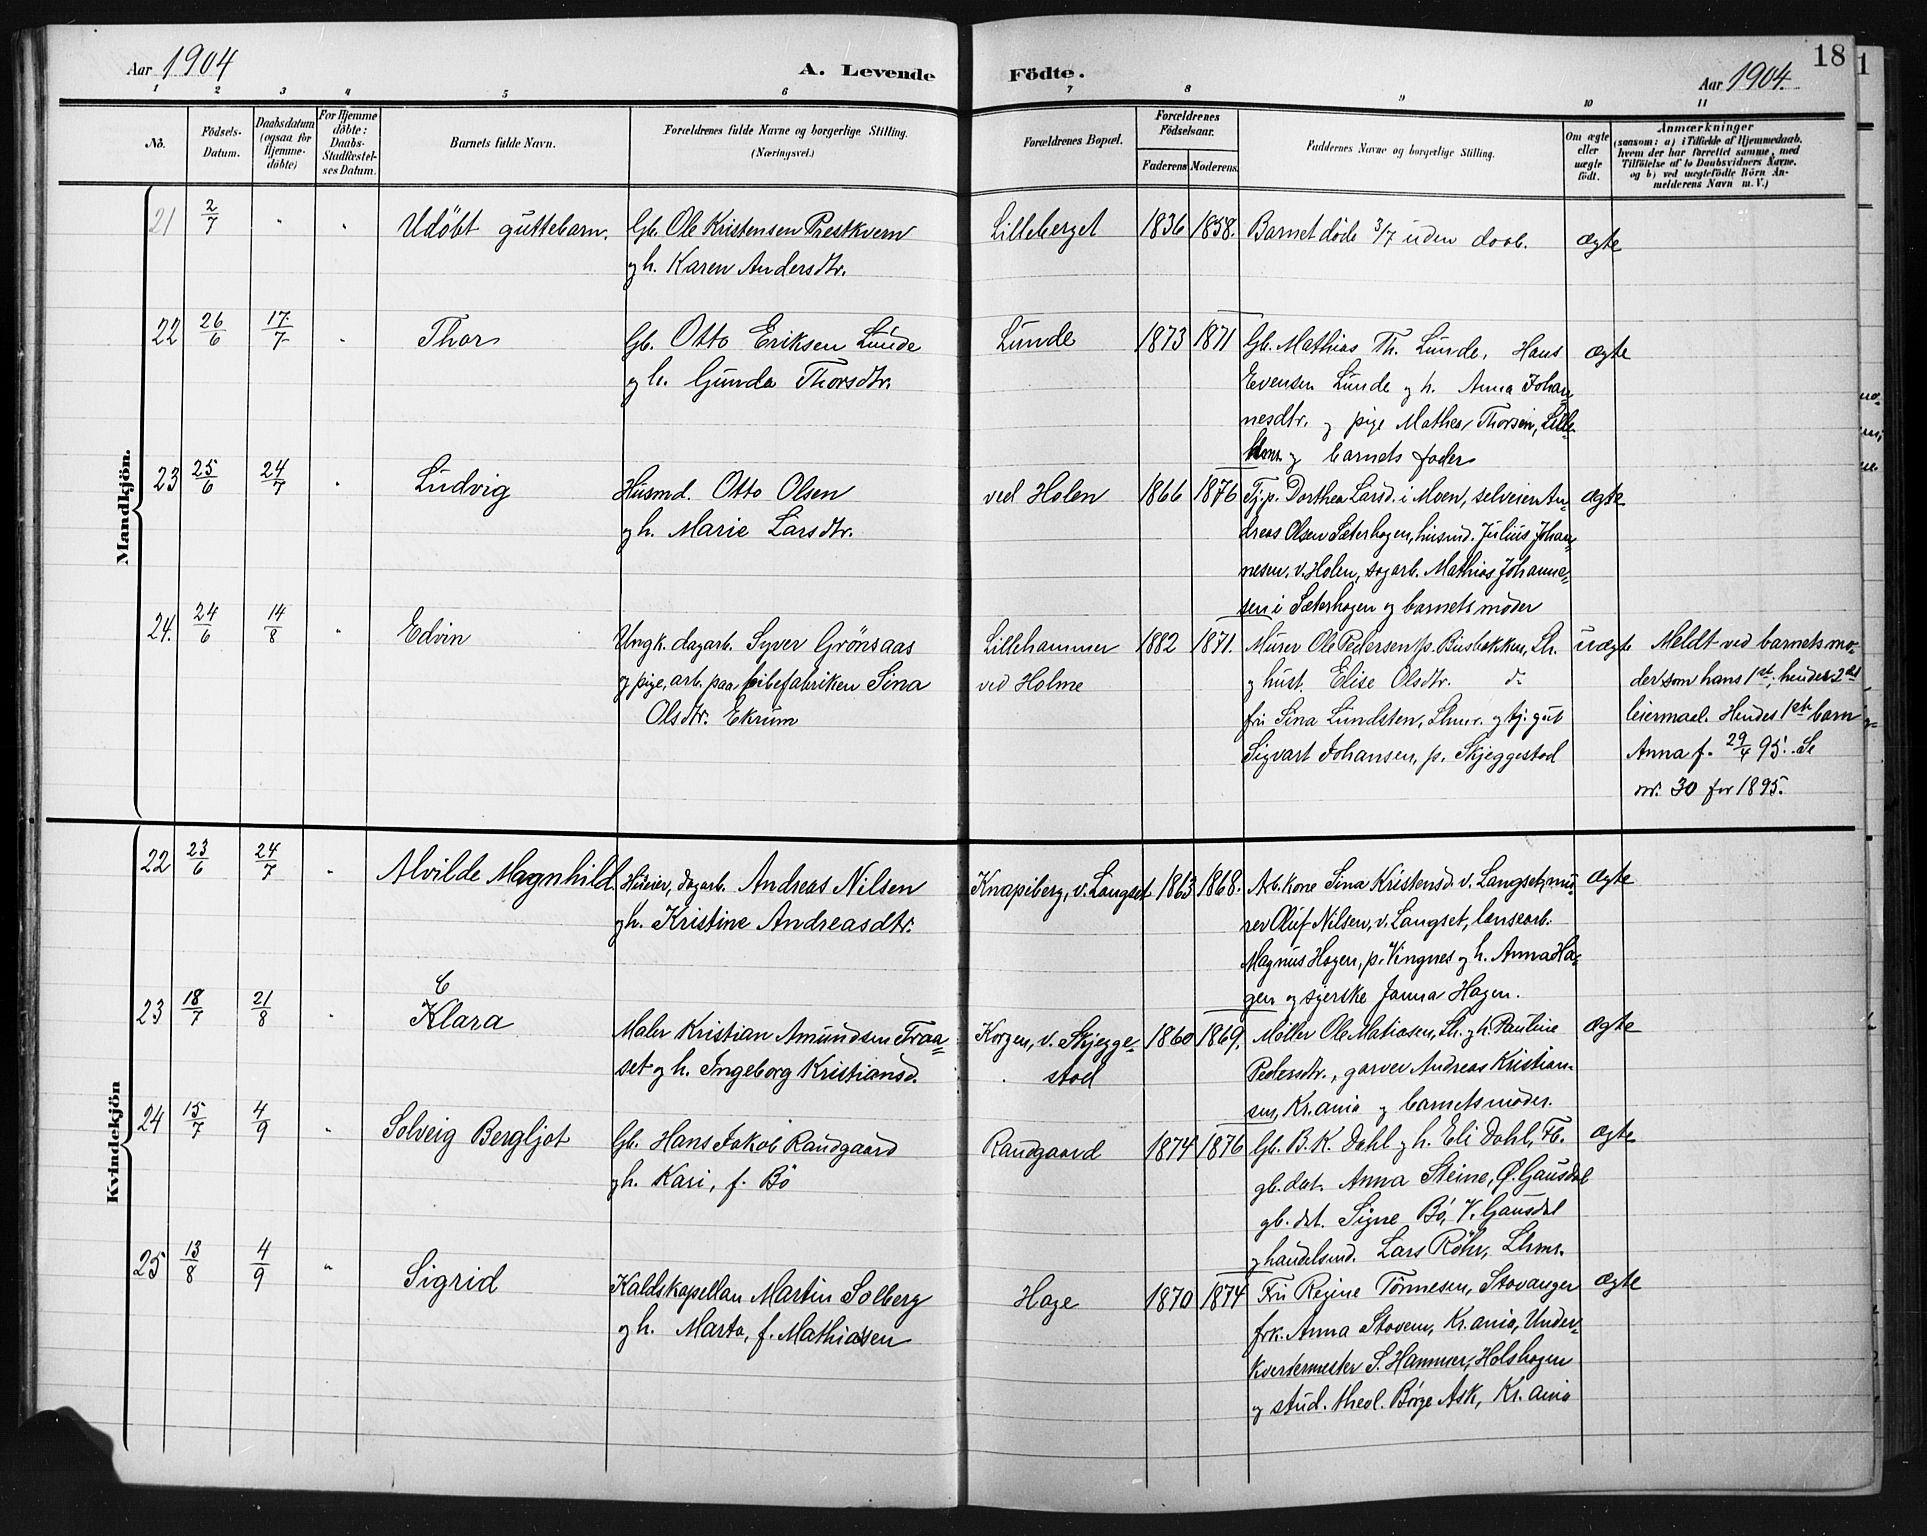 18
Aar 1904
A. Levende Födte.
Aar 1904.
1 2 3 4 5 6 7 8 9 10 11
No.
Födsels-
Datum.
Daabsdatum
(ogsaa for
Hjemme-
döbte)
For Hjemme
döbte:
Daabs-
Stadfæstel-
ses Datum.
Barnets fulde Navn.
Forældrenes fulde Navne og borgerlige Stilling.
(Næringsvei.)
Forældrenes Bopæl.
Forældrenes
Födselsaar.
Faderens Moderens.
Faddernes Navne og borgerlige Stilling.
Om ægte
eller
uægte
födt.
Anmærkninger
(saasom: a) i Tilfælde af Hjemmedaab,
hvem der har forrettet samme, med
Tilföielse af to Daabsvidners Navne,
og b) ved uægtefödte Börn An-
melderens Navn m. V.)
Mandkjön.
21 2/7 " " Udöbt guttebarn. Gb. Ole Kristensen Prestkvern Lilleberget 1836 1858. Barnet döde 3/7 uden daab. ægte
og h. Karen Andersdtr.
22 26/6 17/7 " Thor Gb. Otto Eriksen Lunde Lunde 1873 1871 Gb. Mathias Th. Lunde, Hans ægte
og h. Gunda Thorsdtr. Evensen Lunde og h. Anna Johan-
nesdtr. og pige Mathea Thorsen, Lille-
hmr. og barnets fader
23 25/6 24/7 " Ludvig Husmd. Otto Olsen ved Holen 1866 1876 Tj.p. Dorthea Larsd. i Moen, selveier An- ægte
og h. Marie Larsdtr. dreas Olsen Sæterhagen, husmd. Julius Johan-
nesen, v. Holen, dagarb. Mathias Johanne-
sen i Sæterhagen og barnets moder
24. 24/6 14/8 " Edvin Ungk. dagarb. Syver Grönsaas Lillehammer 1882 1871. Murer Ole Pedersen p. Busbakken, Lh. uægte Meldt ved barnets mo-
og pige, arb. paa pibefabriken Sina ved Holme og hust. Elise Olsdtr. do der som hans 1st, hendes 2det
Olsdtr. Ekrum fru Sina Lundsten, Lhmr. og tj. gut leiermaal. Hendes 1ste barn
Sigvart Johansen, p. Skjeggestad Anna f. 29/4 95. Se
nr. 30 for 1895.
Kvindekjön
22 23/6 24/7 " Alvilde Magnhild Huseier, dagarb. Andreas Nilsen Knapiberg, v. Langset 1863 1868. Arb. kone Sina Kristensd. v. Langset, mu- ægte
og h. Kristine Andreasdtr. rer Oluf Nilsen, v. Langset, lænsearb.
Magnus Hagen, p. Vingnes og h. Anna Ha-
gen og syerske Janna Hagen.
C
23 18/7 21/8 " Klara Maler Kristian Amundsen Traa- Korgen, v. Skjegge- 1860 1869. Møller Ole Matiasen, Lh. og h. Pauline ægte
set og h. Ingeborg Kristiansd. stad Pedersdtr., garver Andreas Kristian-
sen, Kr.ania og barnets moder.
24 15/7 4/9 " Solveig Bergljot Gb. Hans Jakob Randgaard Randgaard 1874 1876 Gb. B. K. Dahl og h. Eli Dahl, Fb. ægte
og h. Kari, f. Bö gb. dat. Anna Steine, Ø. Gausdal
gb. dat. Signe Bö, V. Gausdal
og handelsmd. Lars Röhr, Lhmr.
25 13/8 4/9 " Sigrid Kaldskapellan Martin Solberg Hage 1870 1874 Fru Regine Tönnesen, Stavanger ægte
og h. Marta, f. Mathiassen frk. Anna Stoven, Kr.ania, Under-
kvartermester S. Hammer, Holshagen
og stud. theol. Börge Ask, Kr.ania